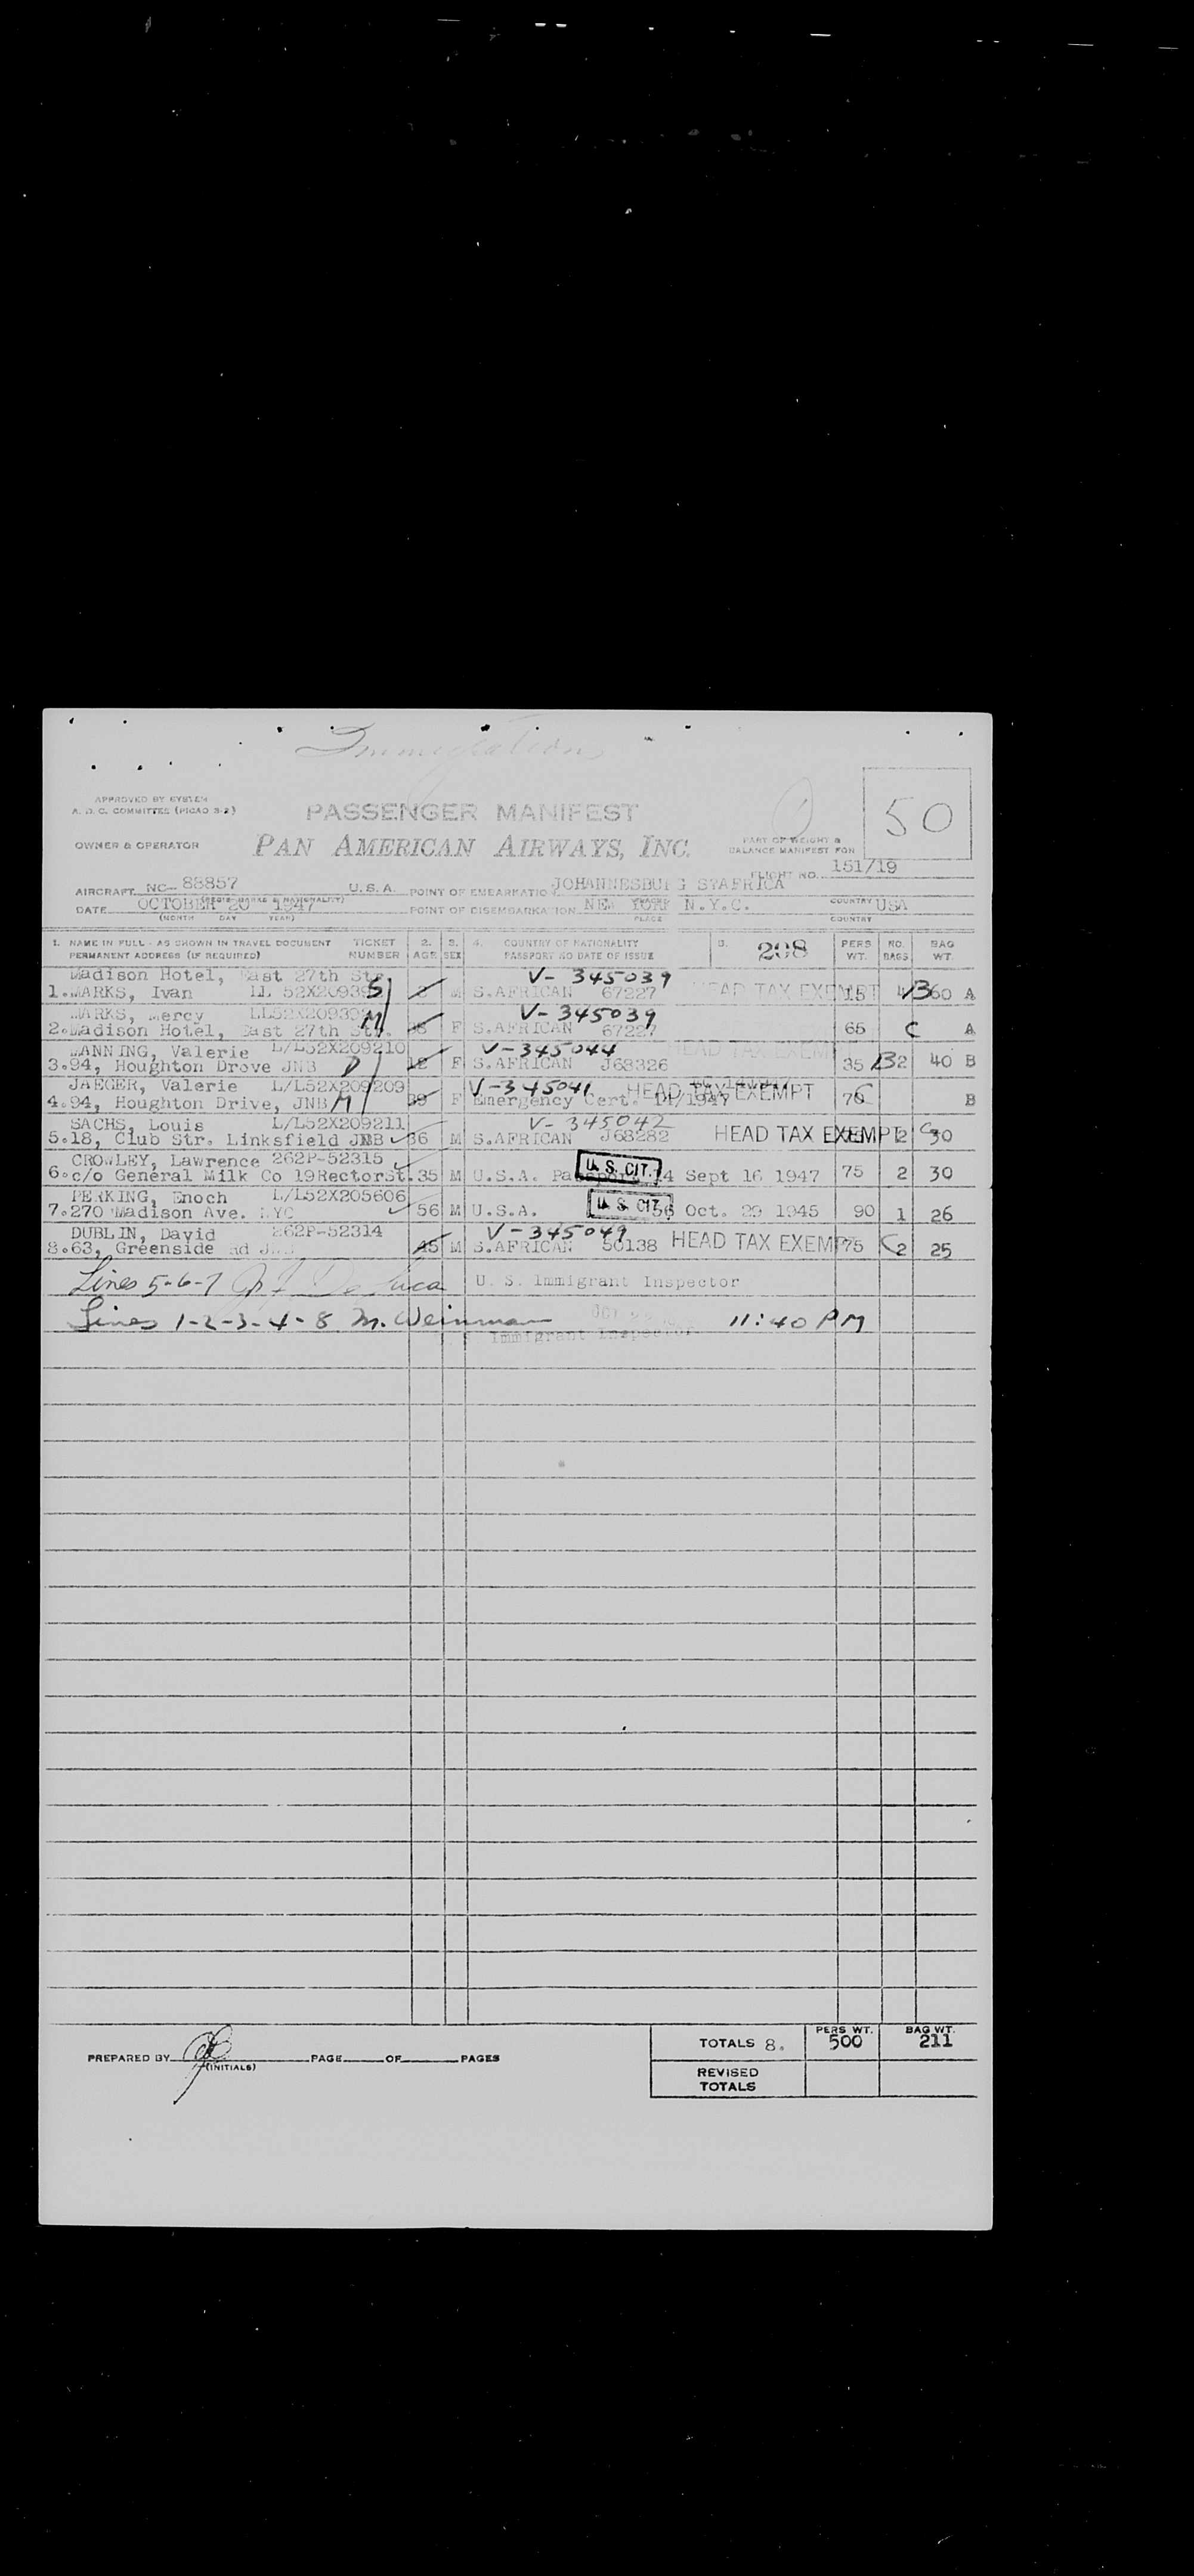 Immigration
50
APPROVED BY SYSTEM
A. D. C. COMMITTEE (PICAO 3-2)
PASSENGER MANIFEST
OWNER & OPERATOR PAN AMERICAN AIRWAYS, INC.
PART OF WEIGHT &
BALANCE MANIFEST FOR
FLIGHT NO. 151/19
AIRCRAFT NC- 88857 U.S.A. POINT OF EMBARKATIO JOHANNESBURG STAFRICA
DATE OCTOBER 20 1947 POINT OF DISEMBARKATION NEW YORK N.Y.C. COUNTRY USA
(MONTH DAY YEAR) PLACE COUNTRY
1. NAME IN FULL - AS SHOWN IN TRAVEL DOCUMENT TICKET 2. 3. 4. COUNTRY OF NATIONALITY 208 PERS NO. BAG
PERMANENT ADDRESS (IF REQUIRED) NUMBER AGE SEX PASSPORT NO DATE OF ISSUE WT. BAGS WT.
Madison Hotel, East 27th Str. V- 345039
1.MARKS, Ivan S M S.AFRICAN 67227 HEAD TAX EXEMPT 15 60 A
MARKS, Mercy V-345039
2.Madison Hotel, East 27th M F S.AFRICAN 67227 65 C A
MANNING, Valerie L/L52X209210 V-345044 HEAD TAX EXEM
3.94, Houghton Drove JNB D F S.AFRICAN J68326 35 2 40 B
JAEGER, Valerie L/L52X209209 V-345041 HEAD TAX EXEMPT
4.94, Houghton Drive, JNB M 39 F Emergency Cert. 14/1947 B
SACHS, Louis L/L52X209211 V-345042
5.18, Club Str. Linksfield JNB 36 M S.AFRICAN J68282 HEAD TAX EXEMPT 2 30
CROWLEY, Lawrence 262P-52315 U.S. CIT.
6.c/o General Milk Co 19RectorSt. 35 M U.S.A. Sept 16 1947 75 2 30
PERKING, Enoch L/L52X205606 U.S. CIT.
7.270 Madison Ave. NYC 56 M U.S.A. Oct. 29 1945 90 1 26
DUBLIN, David 262P-52314 V-345049
8.63, Greenside 45 M S.AFRICAN 50138 HEAD TAX EXEMP 75 C 2 25
Lines 5-6-7 De Luca U. S. Immigrant Inspector
Lines 1-2-3-4-8 M. Weinman 11:40 PM
Immigrant Inspector
PREPARED BY (INITIALS) PAGE OF PAGES
TOTALS 8. PERS WT. 500 BAG WT. 211
REVISED
TOTALS